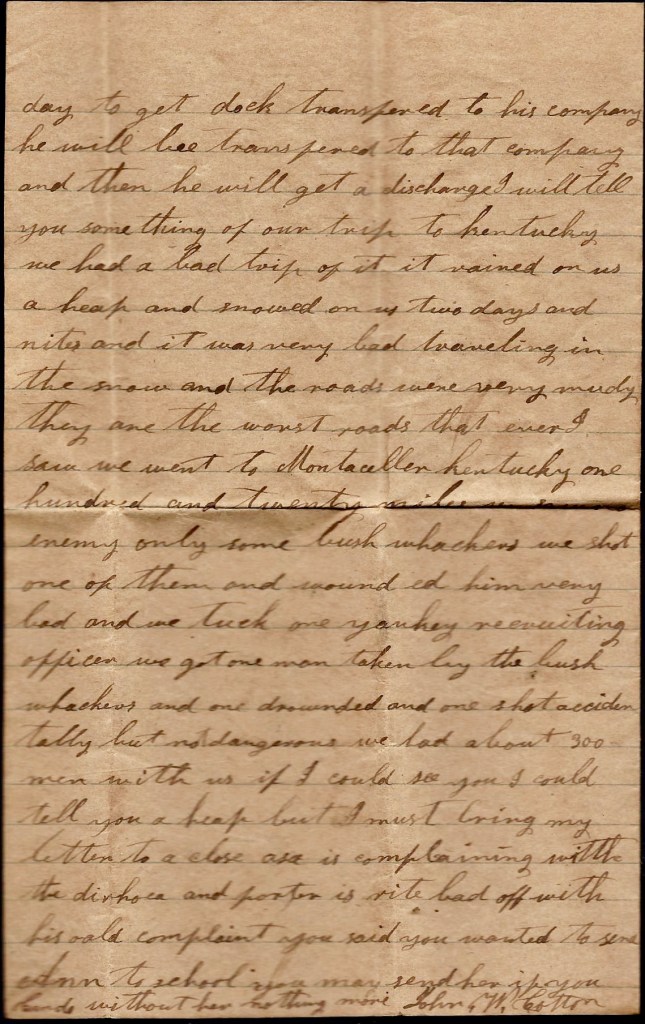 day to get dock transpered to his company
he will bee transpered to that company
and then he will get a discharge I will tell
you some thing of our trip to kentucky
we had a bad trip of it it rained on us
a heap and snowed on us two days and
nites and it was very bad traveling in
the snow and the roads were very mudy
they are the worst roads that ever I
saw we went to Montaceller kentucky one
hundred and twenty miles
enemy only some bush whackers we shot
one of them and wound ed him very
bad and we tuck one yankey recruiting
officer we got one man taken by the bush
whackers and one drownded and one shot acciden
tally but not dangerous we had about 300
men with us if I could see you I could
tell you a heap but I must bring my
letter to a close asa is complaining with
the dirhoea and porter is rite bad off with
his oald complaint you said you wanted to send
Ann to school you may send her if you
can do without her nothing more John W. Cotton